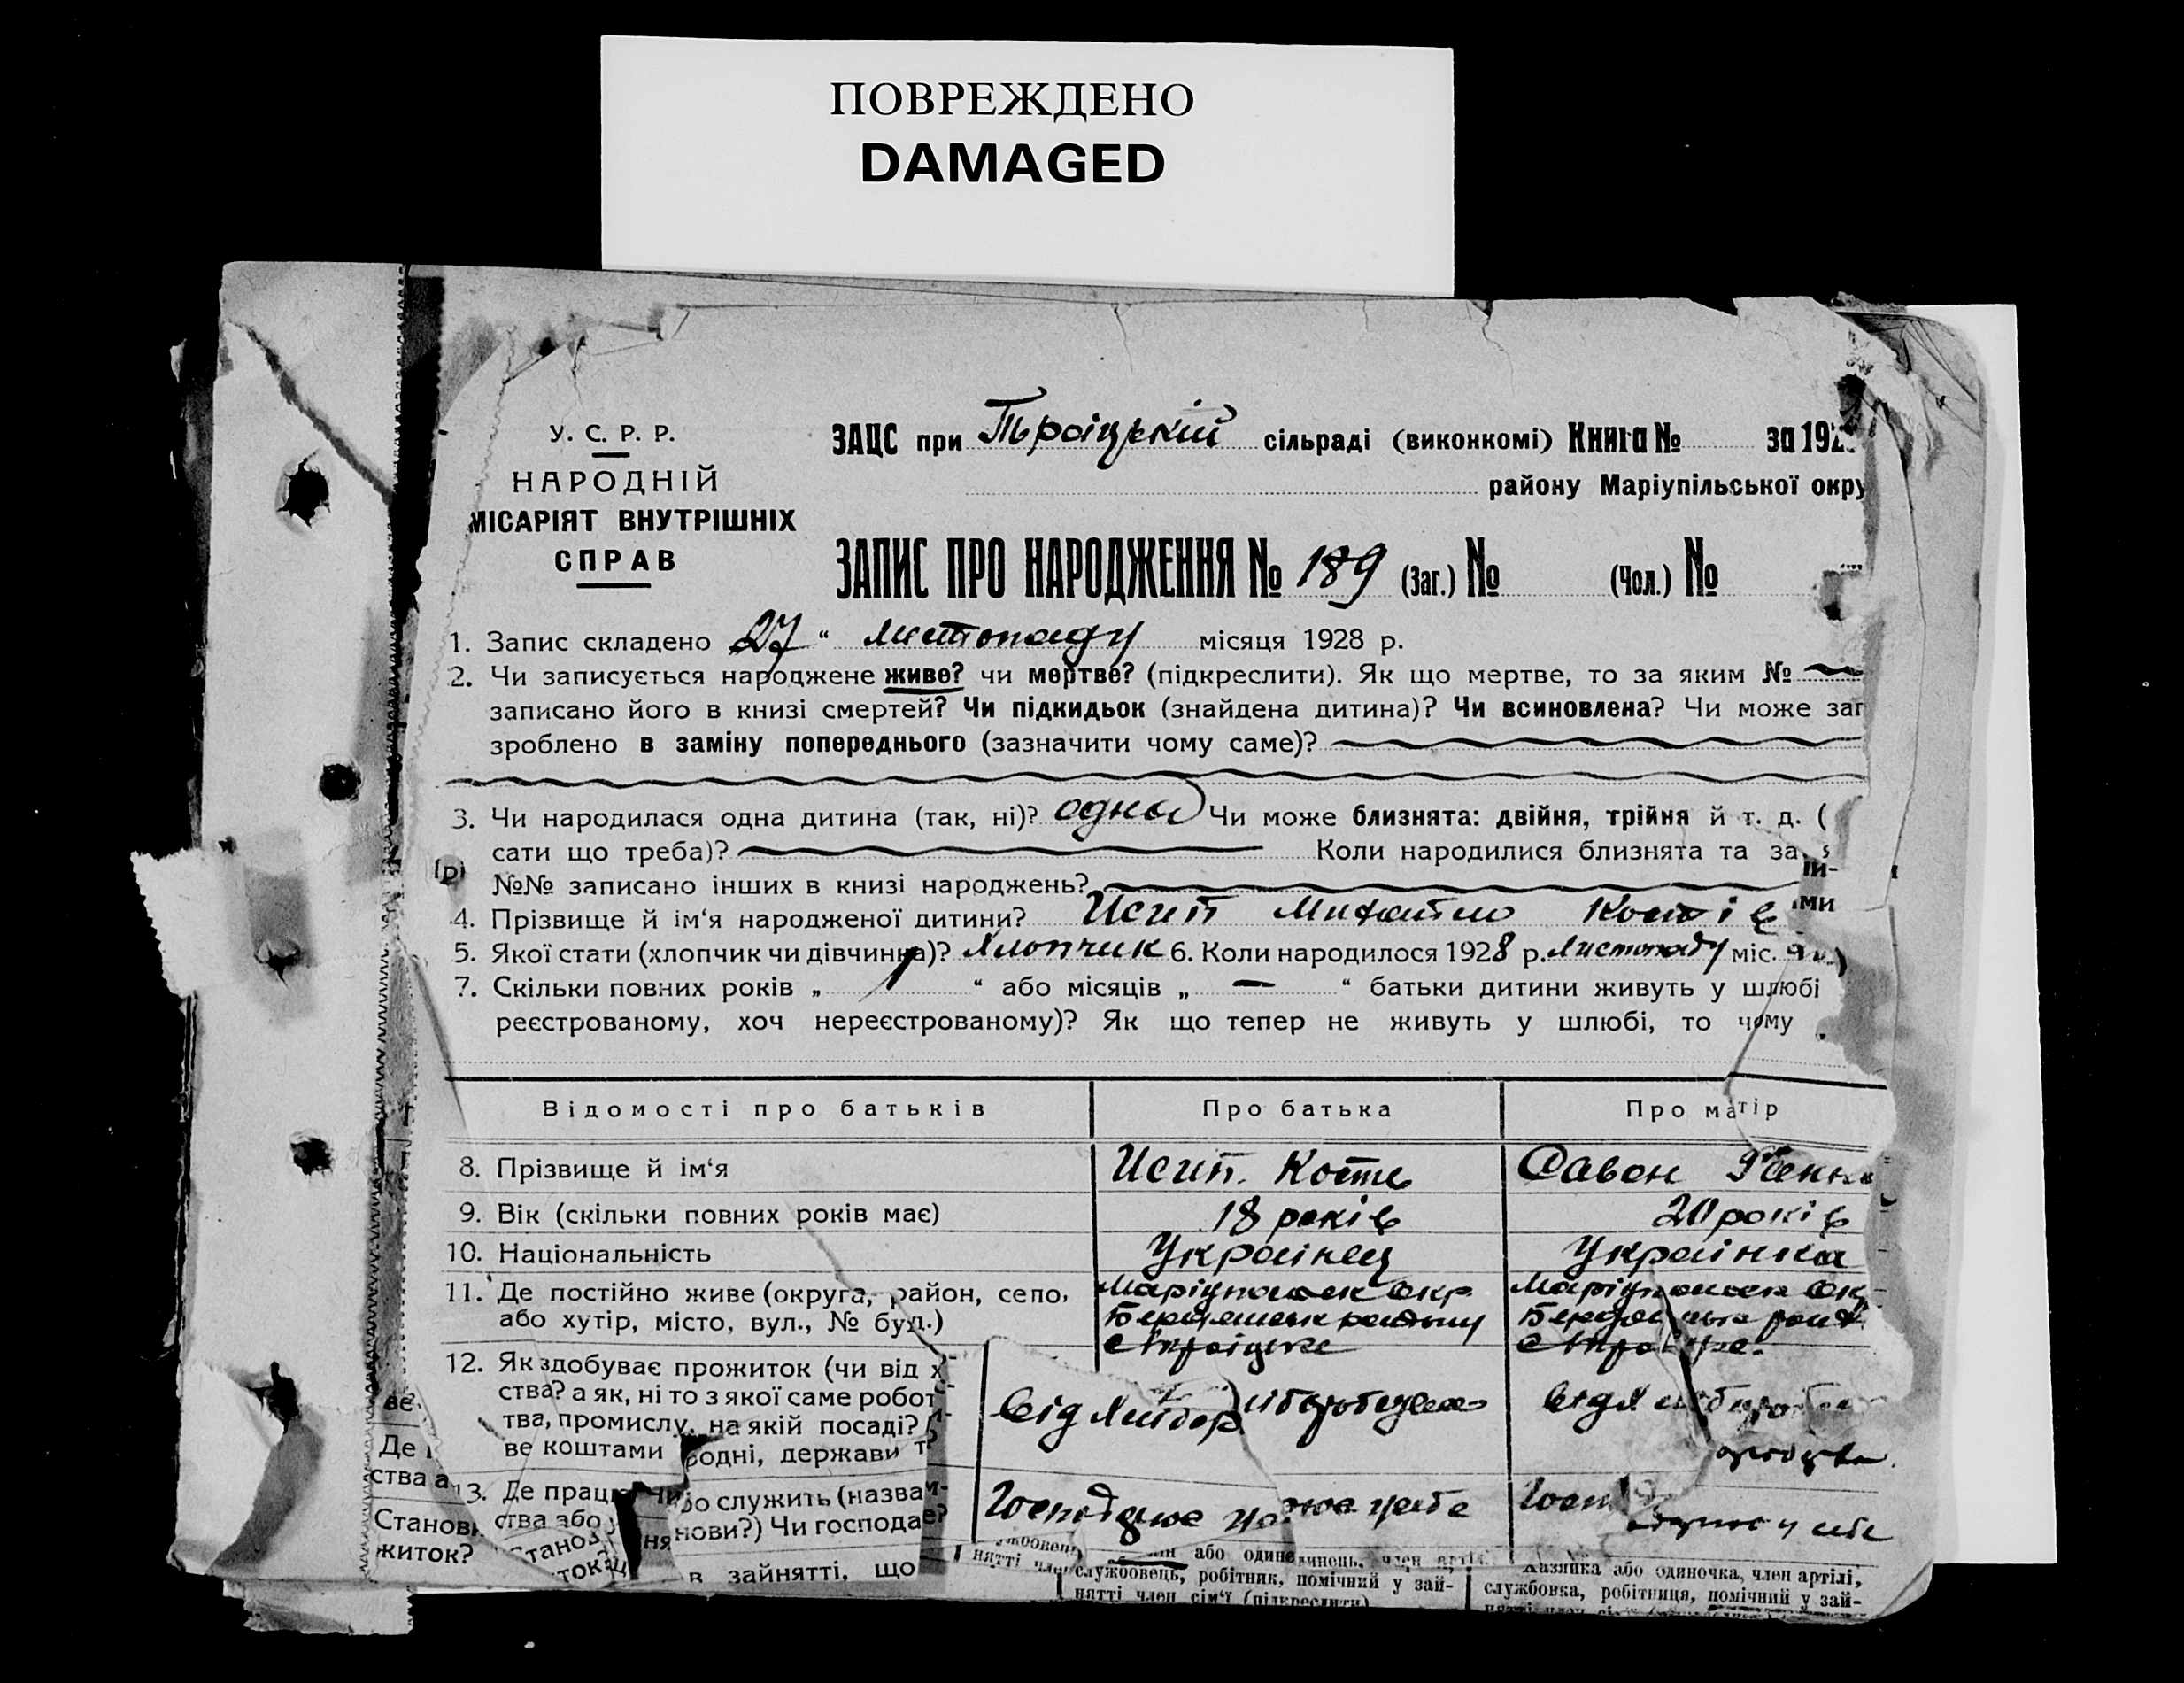 ПОВРЕЖДЕНО
DAMAGED
У. С. Р. Р.
НАРОДНІЙ
МІСАРІЯТ ВНУТРІШНІХ
СПРАВ
ЗАЦС при Троіцькій сільраді (виконкомі) Книга № за 192
району Маріупільської окру
ЗАПИС ПРО НАРОДЖЕННЯ № 189 (Заг.) № (Чол.) №
1. Запис складено 27 " листопаду місяця 1928 р.
2. Чи записується народжене живе? чи мертве? (підкреслити). Як що мертве, то за яким №
записано його в книзі смертей? Чи підкидьок (знайдена дитина)? Чи всиновлена? Чи може зап
зроблено в заміну попереднього (зазначити чому саме)?
3. Чи народилася одна дитина (так, ні)? одна Чи може близнята: двійня, трійня й т. д. (
сати що треба)? Коли народилися близнята та за
№№ записано інших в книзі народжень?
4. Прізвище й ім‘я народженої дитини? Исип Михайло Костів
5. Якої стати (хлопчик чи дівчинка)? Хлопчик 6. Коли народилося 1928 р. листопаду міс.
7. Скільки повних років „ 1 “ або місяців „ — “ батьки дитини живуть у шлюбі
реєстрованому, хоч нереєстрованому)? Як що тепер не живуть у шлюбі, то чому
Відомості про батьків Про батька Про матір
8. Прізвище й ім‘я Исип. Костя Савон
9. Вік (скільки повних років має) 18 років 20 років
10. Національність Українец Українка
11. Де постійно живе (округа, район, село, Маріупольск Окр Маріупольск Ок
або хутір, місто, вул., № буд.) Бердянськ району
с Троіцьке
12. Як здобуває прожиток (чи від х
ства? а як, ні то з якої саме робот від хлібор
тва, промислу, на якій посаді?
ве коштами родні, держави т?
13. Де працює чи
бо служить (назва
ства або
нови?) Чи господає? Господарює у себе
в зайнятті, що
Де
ства а
Станови
житок?
або один
службовець, робітник, помічний у зай-
нятті член сім‘ї (підкреслити)
Хазяйка або одиночка, член артілі,
службовка, робітниця, помічний у зай-